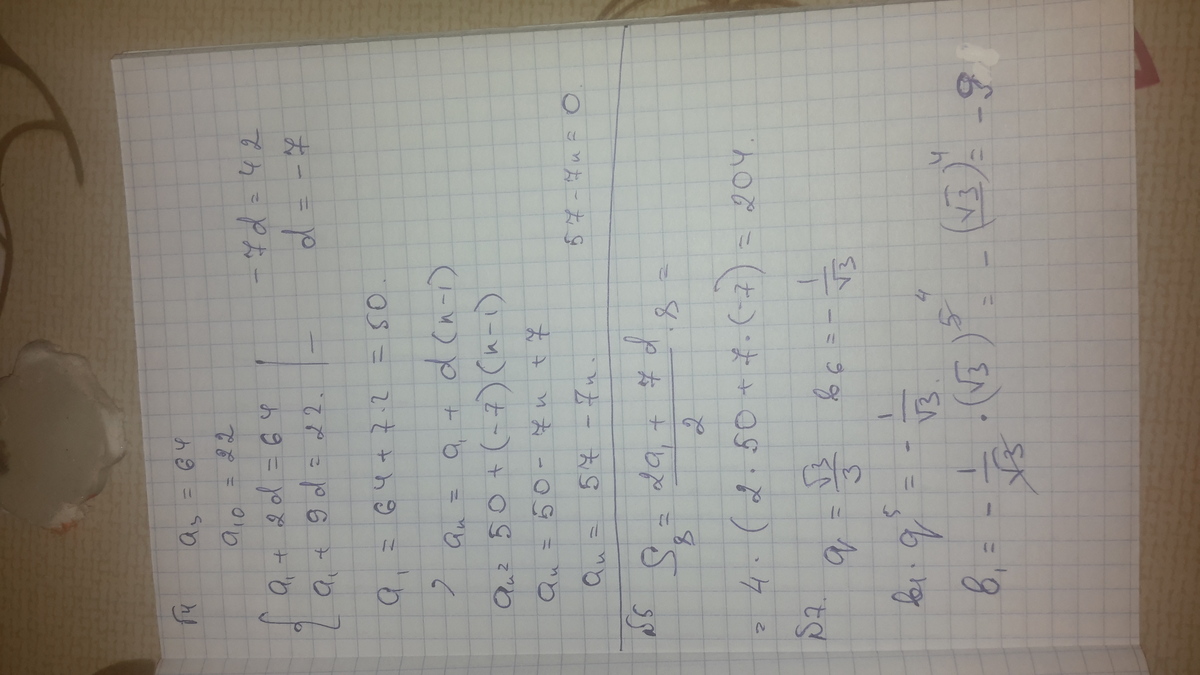 №4 a₃ = 64
a₁₀ = 22
{ a₁ + 2d = 64 | -7d = 42
a₁ + 9d = 22. | — d = -7
a₁ = 64 + 7·2 = 50.
aₙ = a₁ + d(n-1)
aₙ = 50 + (-7)(n-1)
aₙ = 50 - 7n + 7
aₙ = 57 - 7n. 57 - 7n = 0.
№5 S₈ = (2a₁ + 7d)/2 · 8 =
= 4·(2·50 + 7·(-7)) = 204.
№7. q = √3/3 b₆ = -1/√3
b₁·q⁵ = -1/√3.
b₁ = -1/√3 · (√3)⁵ ⁴ = -(√3)⁴ = -9